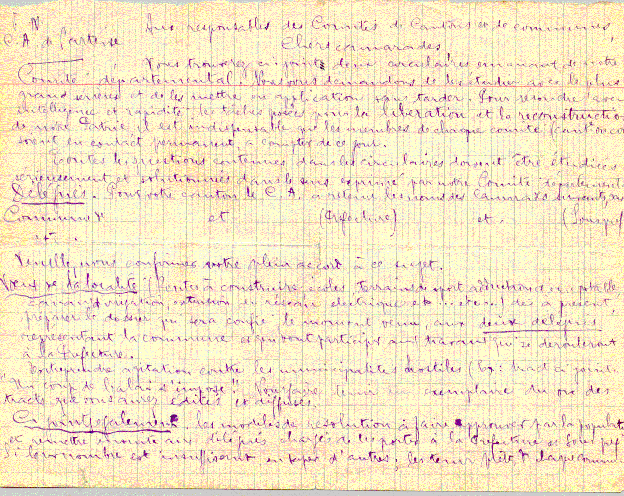 Aux responsables des Comités de Cantons et de communes,
C.A. de
Chers camarades
Vous trouverez ci-joints deux circulaires émanant de notre
Comité départemental. Nous vous demandons de les étudier avec le plus
grand sérieux et de les mettre en application sans tarder. Pour résoudre avec
intelligence et rapidité les tâches posées pour la libération et la reconstruction
de notre Patrie, il est indispensable que les membres de chaque comité
soient en contact permanent, à compter de ce jour.
Toutes les questions contenues dans les circulaires doivent être étudiées
sérieusement et solutionnées dans le sens exprimé par notre Comité départemental
Délégués. Pour votre canton le C.A. a retenu les noms des Camarades suivants
et (Préfecture) et
Veuillez nous confirmer votre plein accord à ce sujet.
Voeux de la localité à construire, écoles, terrains sport, adductions eau potable,
extension en réseau électrique etc... dès à présent,
préparer le dossier qui sera confié, le moment venu, aux deux délégués
représentant la commune et qui vont participer aux travaux qui se dérouleront
à la Préfecture.
Entreprendre agitation contre les municipalités hostiles (tract ci-joint
"Un coup de balai s'impose". Nous faire tenir un exemplaire du ou des
tracts que vous aurez édités et diffusés.
Ci-joint également les modèles de résolution à faire approuver par la population
et remettre ensuite aux délégués chargés de les porter à la Préfecture et Sous-préf
Si leur nombre est insuffisant en taper d'autres, les tenir prêts